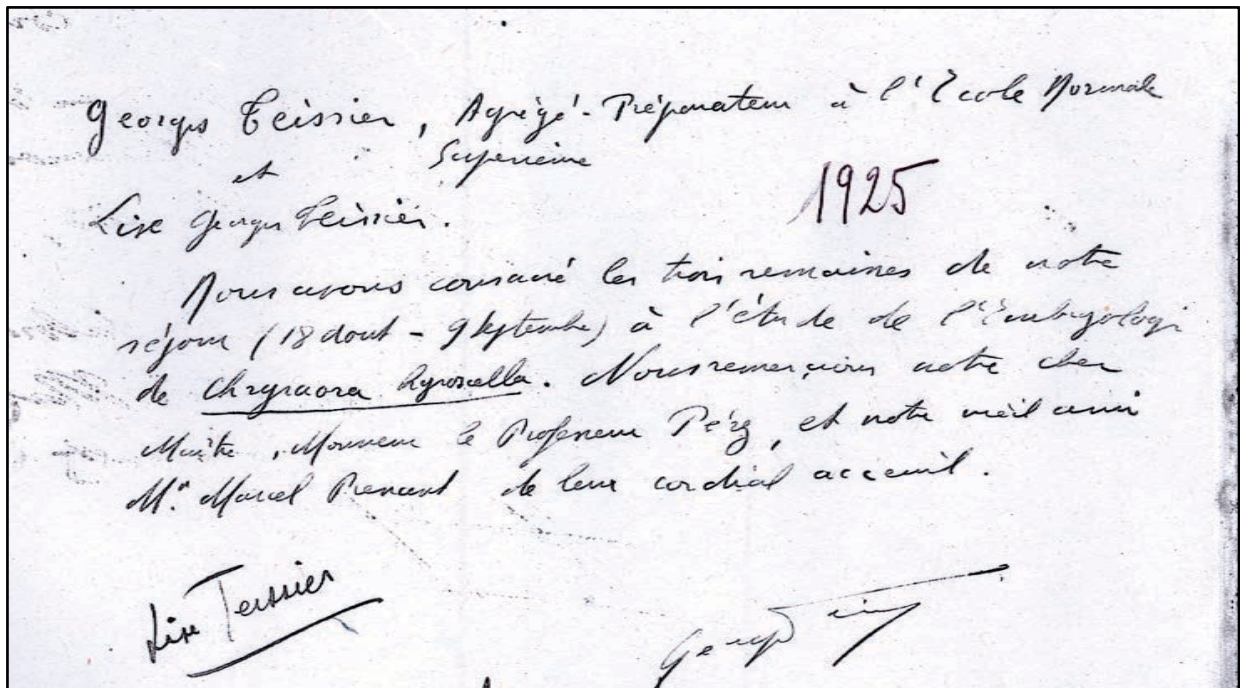 Georges Teissier, Agrégé-Préparateur à l'Ecole Normale
Supérieure
et
1925
Lise Georges Teissier.
Nous avons consacré les trois semaines de notre
séjour (18 Aout - 9 Septembre) à l'étude de l'Embryologie
de Chrysaora hysoscella. Nous remercions notre cher
Maître, Monsieur le Professeur Pérez, et notre vieil ami
Mr. Marcel Prenant de leur cordial acceuil.
Lise Teissier
Georges Teissier